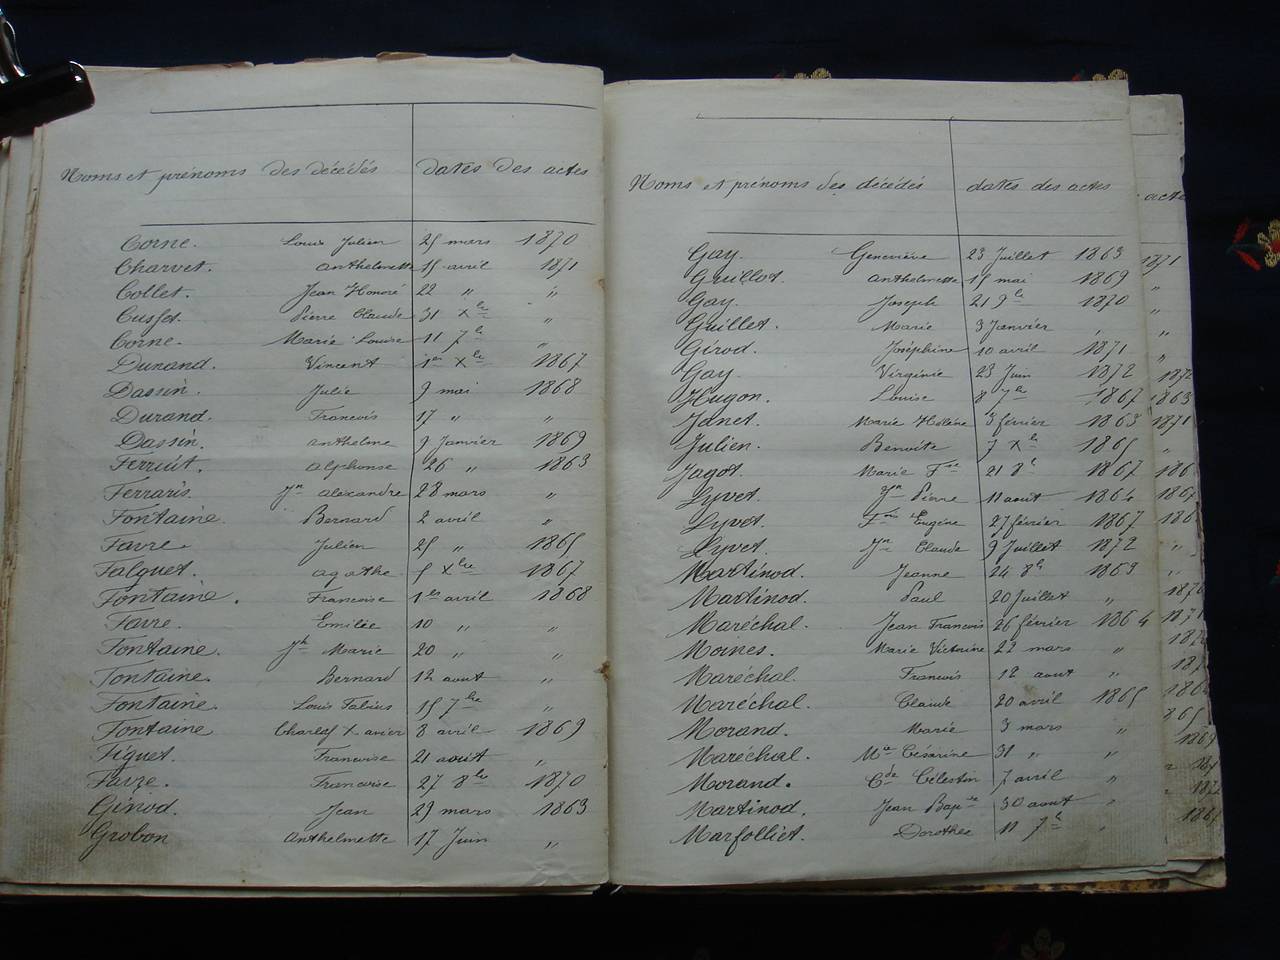 Noms et prénoms des décédés dates des actes
Corne. Louis Julien 25 mars 1870
Charvet. anthelmette 15 avril 1871
Collet. Jean Honoré 22 " "
Cusset. Pierre Claude 31 Xbre "
Corne. Marie Louise 11 7bre "
Durand. Vincent 1er Xbre 1867
Dassin. Julie 9 mai 1868
Durand. Francois 17 " "
Dassin. anthelme 9 Janvier 1869
Ferruit. alphonse 26 " 1863
Ferraris. Jn alexandre 28 mars "
Fontaine. Bernard 2 avril "
Favre. Julien 25 " 1865
Falquet. agathe 5 Xbre 1867
Fontaine. Francoise 1er avril 1868
Favre. Emilie 10 " "
Fontaine. Jh Marie 20 " "
Fontaine. Bernard 12 aout "
Fontaine. Louis Fabius 15 7bre "
Fontaine Charles Xavier 8 avril 1869
Figuet. Francoise 21 aout "
Favre. Francoise 27 8bre 1870
Girod. Jean 29 mars 1863
Grobon Anthelmette 17 Juin "
Noms et prénoms des décédés dates des actes
Gay. Geneviève 23 Juillet 1863
Guillot. anthelmette 15 mai 1869
Gay. Joseph 21 9bre 1870
Guillet. Marie 3 Janvier "
Girod. Joséphine 10 avril 1871
Gay. Virginie 23 Juin 1872
Hugon. Louise 8 7bre 1867
Janet. Marie Hélène 3 février 1863
Julien. Benoite 7 Xbre 1865
Jagot. Marie Fse 21 8e 1867
Lyvet. Jn Pierre 11 aout 1864
Lyvet. Eugène 27 février 1867
Lyvet. Jn Claude 9 Juillet 1872
Martinod. Jeanne 24 8e 1863
Martinod. Paul 20 Juillet "
Maréchal. Jean Francois 26 février 1864
Moines. Marie Victorine 22 mars "
Maréchal. Francois 12 aout "
Maréchal. Claude 20 avril 1865
Morand. Marie 3 mars "
Maréchal. Mie Césarine 31 " "
Morand. Cde Célestin 7 avril "
Martinod. Jean Bapte 30 aout "
Marfolliet. Dorothée 11 7e "